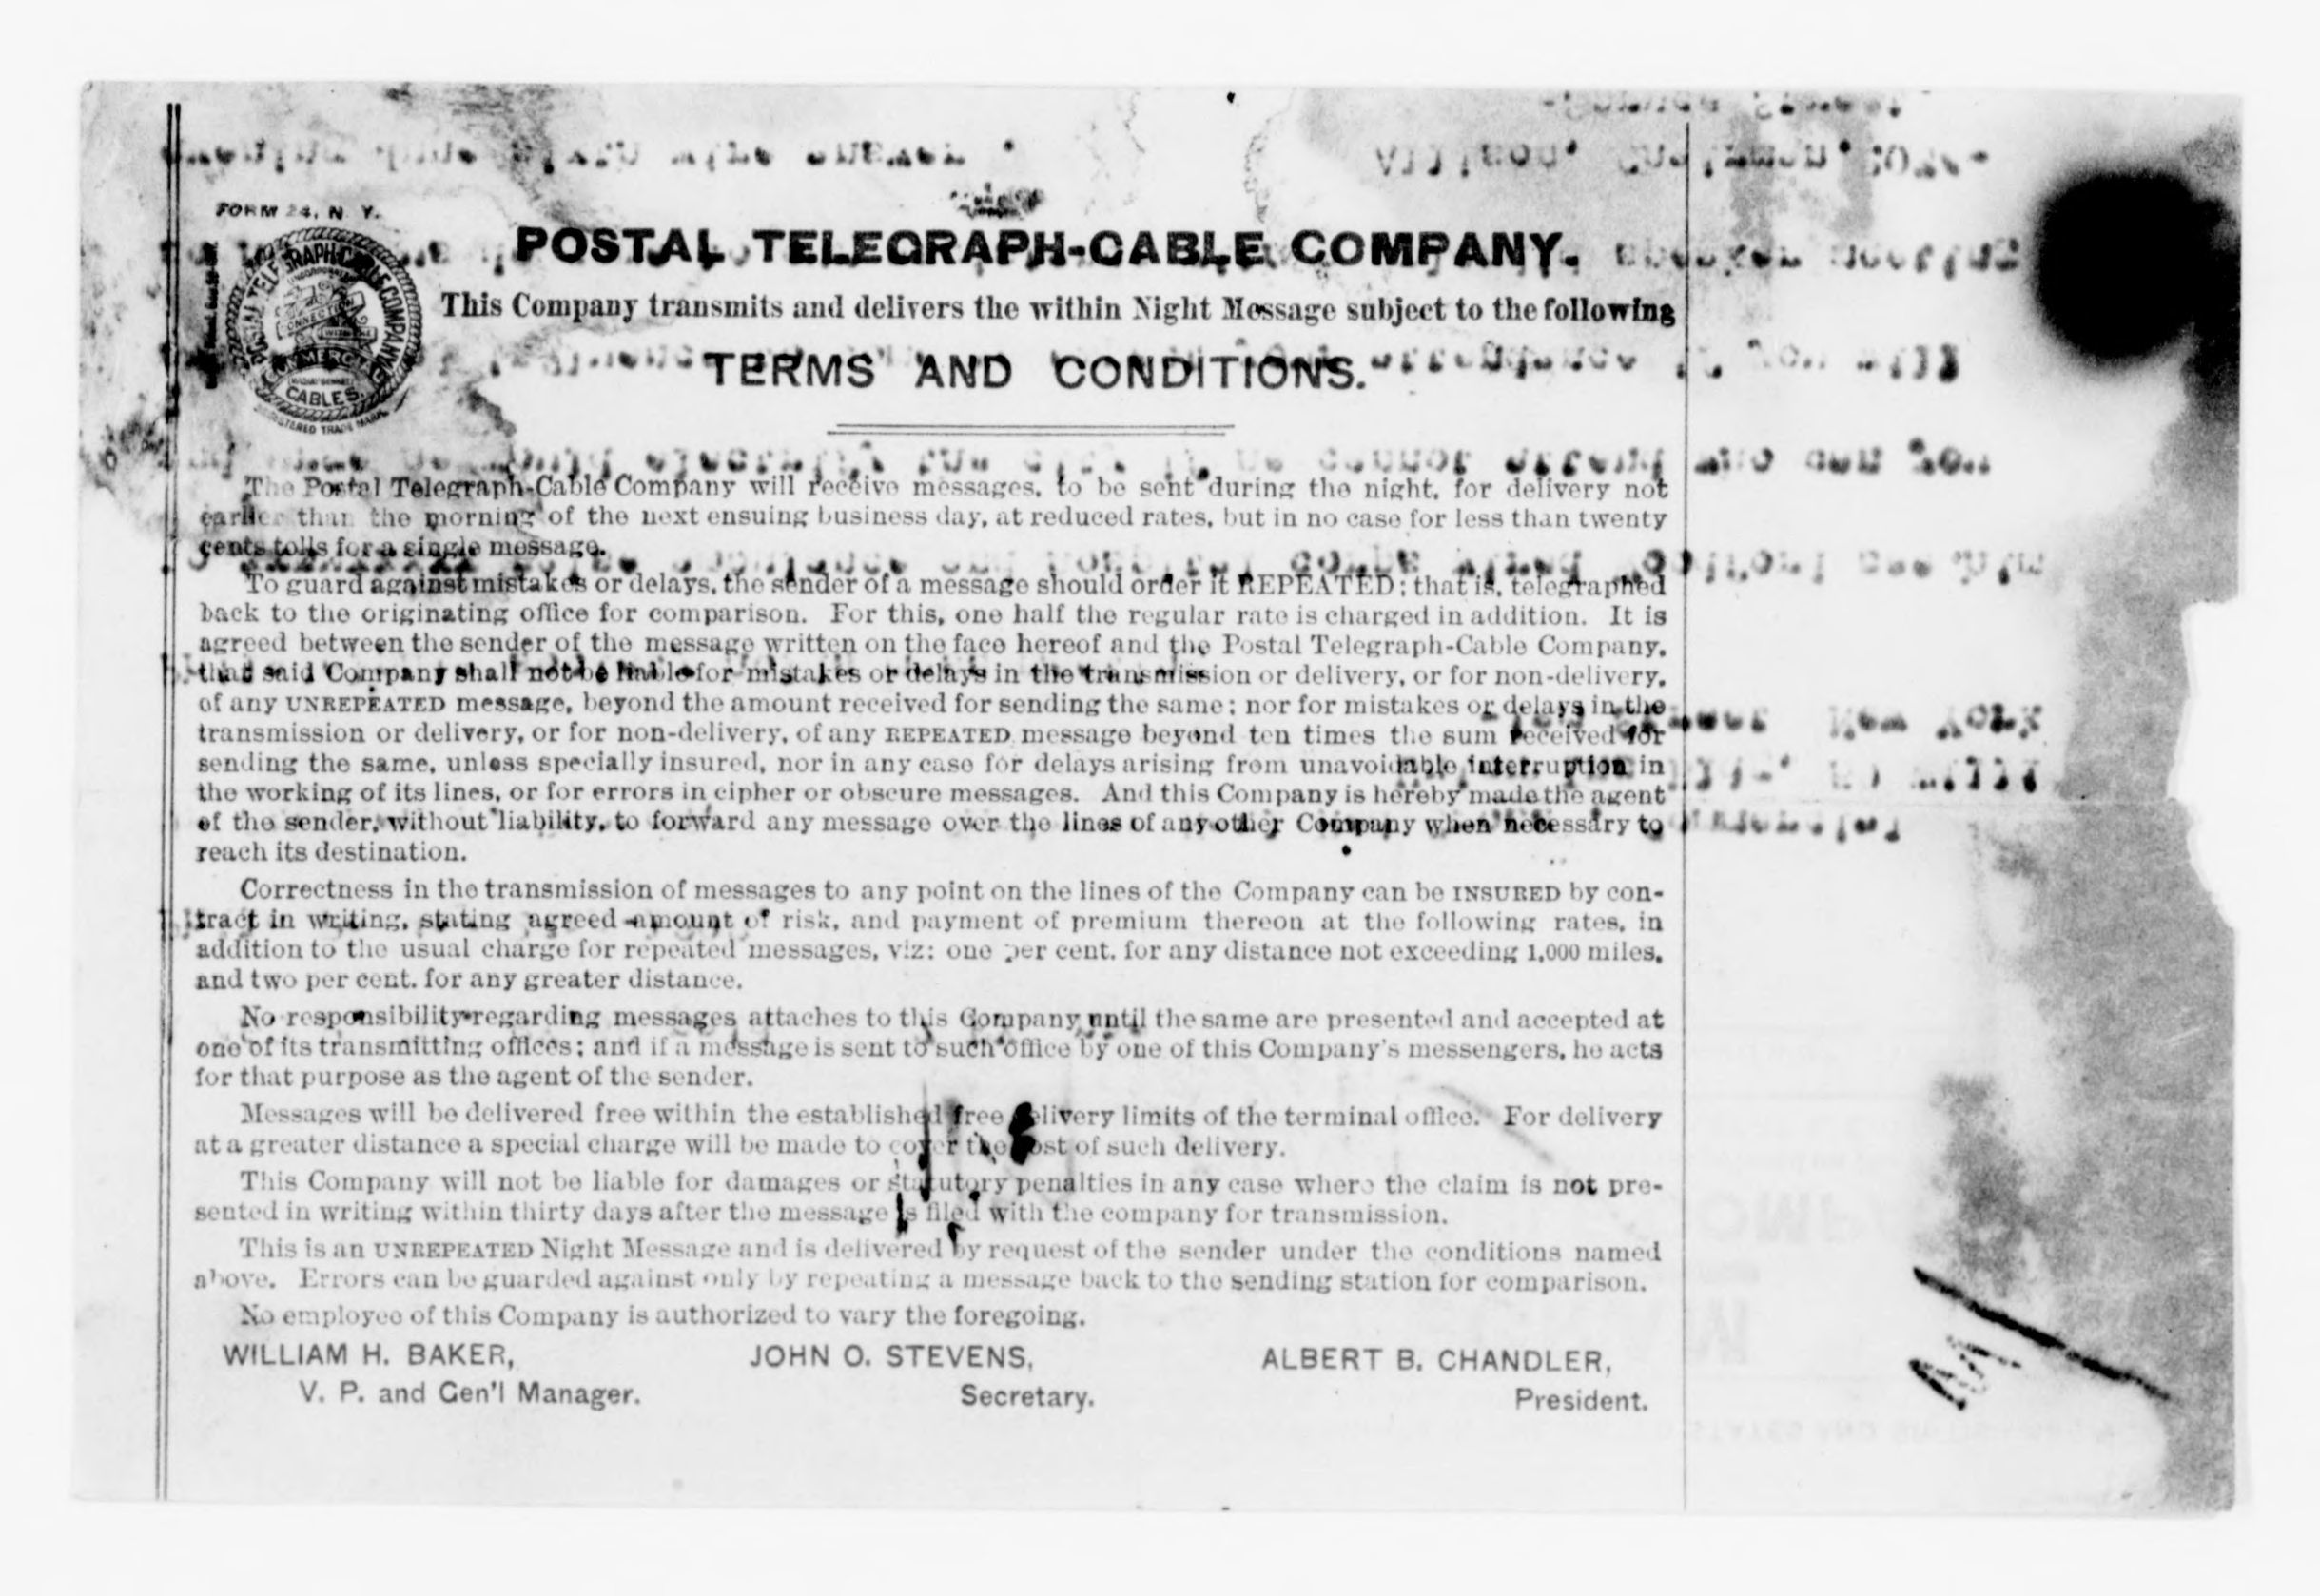 FORM 24, N. Y.
POSTAL TELEGRAPH-CABLE COMPANY
COMMERCIAL
CABLES
REGISTERED TRADE MARK
POSTAL TELEGRAPH-CABLE COMPANY.
This Company transmits and delivers the within Night Message subject to the following
TERMS AND CONDITIONS.
The Postal Telegraph-Cable Company will receive messages, to be sent during the night, for delivery not
earlier than the morning of the next ensuing business day, at reduced rates, but in no case for less than twenty
cents tolls for a single message.
To guard against mistakes or delays, the sender of a message should order it REPEATED; that is, telegraphed
back to the originating office for comparison. For this, one half the regular rate is charged in addition. It is
agreed between the sender of the message written on the face hereof and the Postal Telegraph-Cable Company,
that said Company shall not be liable for mistakes or delays in the transmission or delivery, or for non-delivery,
of any UNREPEATED message, beyond the amount received for sending the same; nor for mistakes or delays in the
transmission or delivery, or for non-delivery, of any REPEATED message beyond ten times the sum received for
sending the same, unless specially insured, nor in any case for delays arising from unavoidable interruption in
the working of its lines, or for errors in cipher or obscure messages. And this Company is hereby made the agent
of the sender, without liability, to forward any message over the lines of any other Company when necessary to
reach its destination.
Correctness in the transmission of messages to any point on the lines of the Company can be INSURED by con-
tract in writing, stating agreed amount of risk, and payment of premium thereon at the following rates, in
addition to the usual charge for repeated messages, viz: one per cent. for any distance not exceeding 1,000 miles,
and two per cent. for any greater distance.
No responsibility regarding messages attaches to this Company until the same are presented and accepted at
one of its transmitting offices; and if a message is sent to such office by one of this Company's messengers, he acts
for that purpose as the agent of the sender.
Messages will be delivered free within the established free delivery limits of the terminal office. For delivery
at a greater distance a special charge will be made to cover the cost of such delivery.
This Company will not be liable for damages or statutory penalties in any case where the claim is not pre-
sented in writing within thirty days after the message is filed with the company for transmission.
This is an UNREPEATED Night Message and is delivered by request of the sender under the conditions named
above. Errors can be guarded against only by repeating a message back to the sending station for comparison.
No employee of this Company is authorized to vary the foregoing.
WILLIAM H. BAKER, JOHN O. STEVENS, ALBERT B. CHANDLER,
V. P. and Gen'l Manager. Secretary. President.